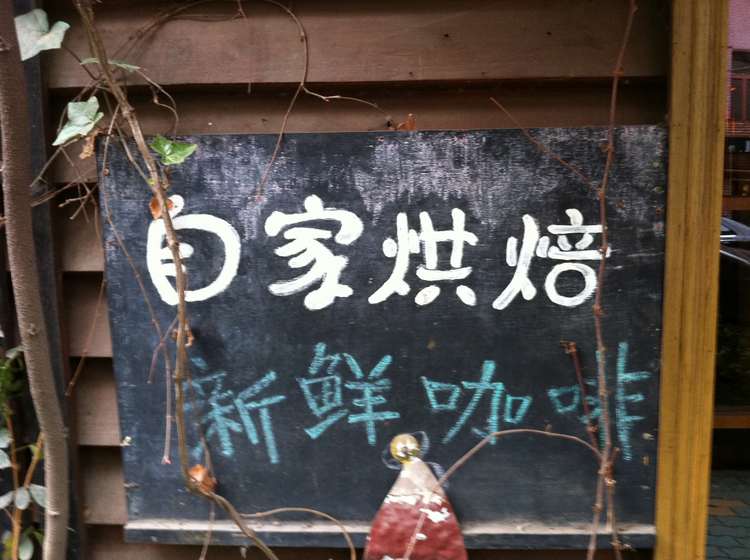 自家烘焙
新鲜咖啡